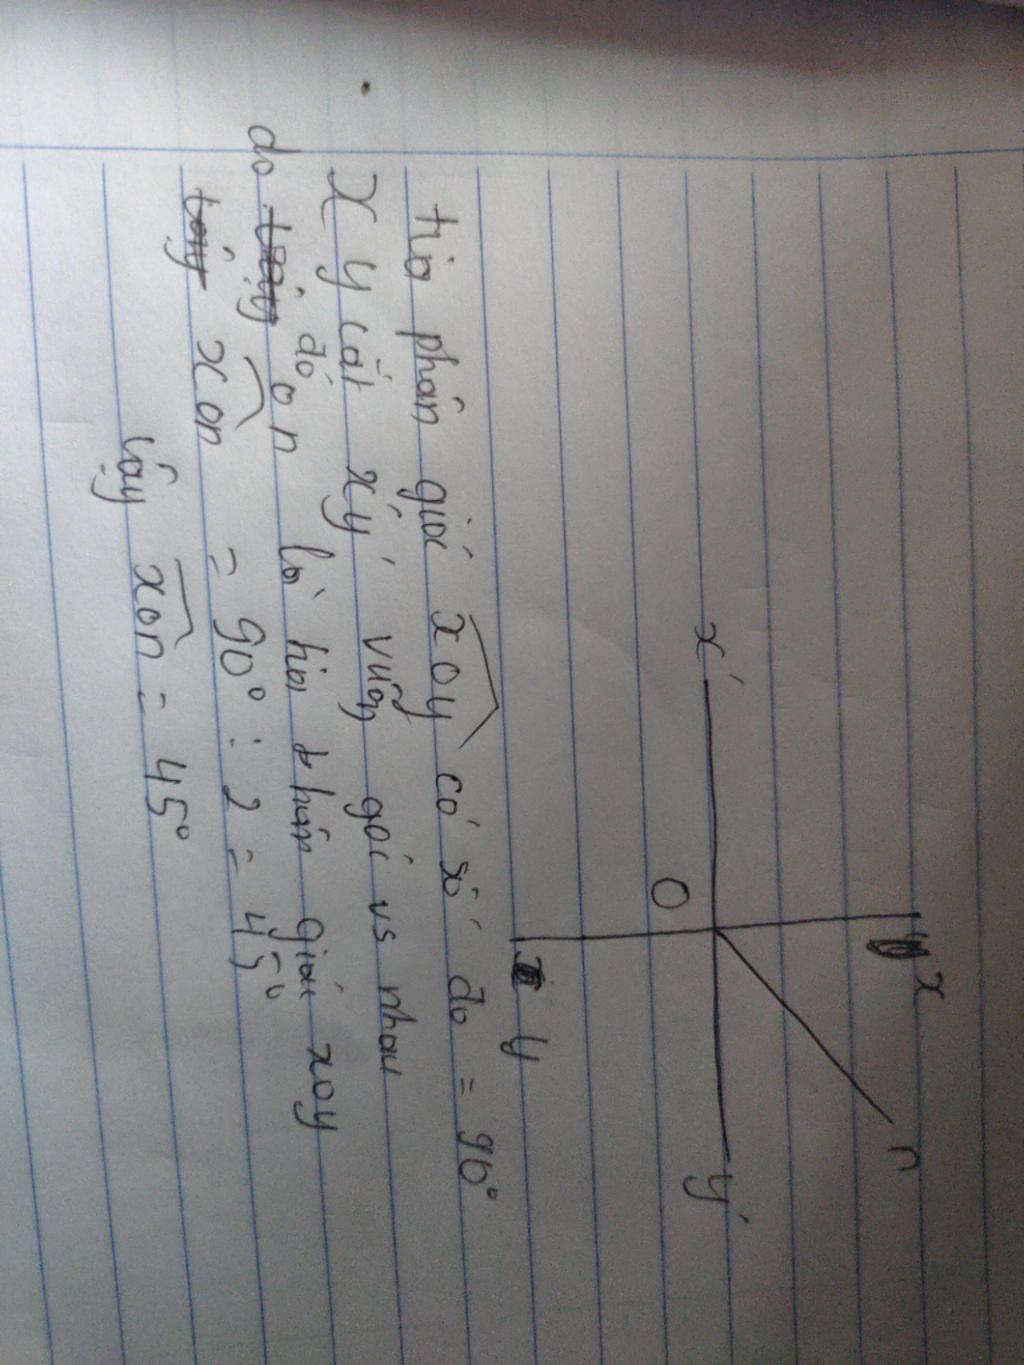 x
n
x'
y'
O
y
tia phân giác xoy có số đo = 90°
x y cắt x'y' vuông góc vs nhau
do đó on là tia phân giác xoy
xon = 90° : 2 = 45°
Vậy xon = 45°